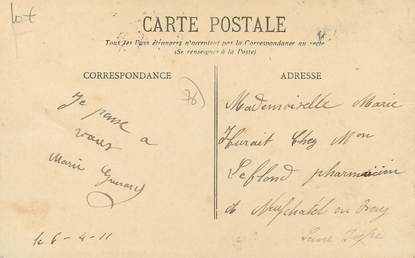 Lot
CARTE POSTALE
Tous les Pays étrangers n'acceptent pas la Correspondance au recto
(Se renseigner à la Poste)
CORRESPONDANCE
ADRESSE
76
Je pense a
vous
Marie
le 6-4-11
Mademoiselle Marie
Chez Mon
Leblond pharmacien
à Neufchatel en Bray
Seine Infre